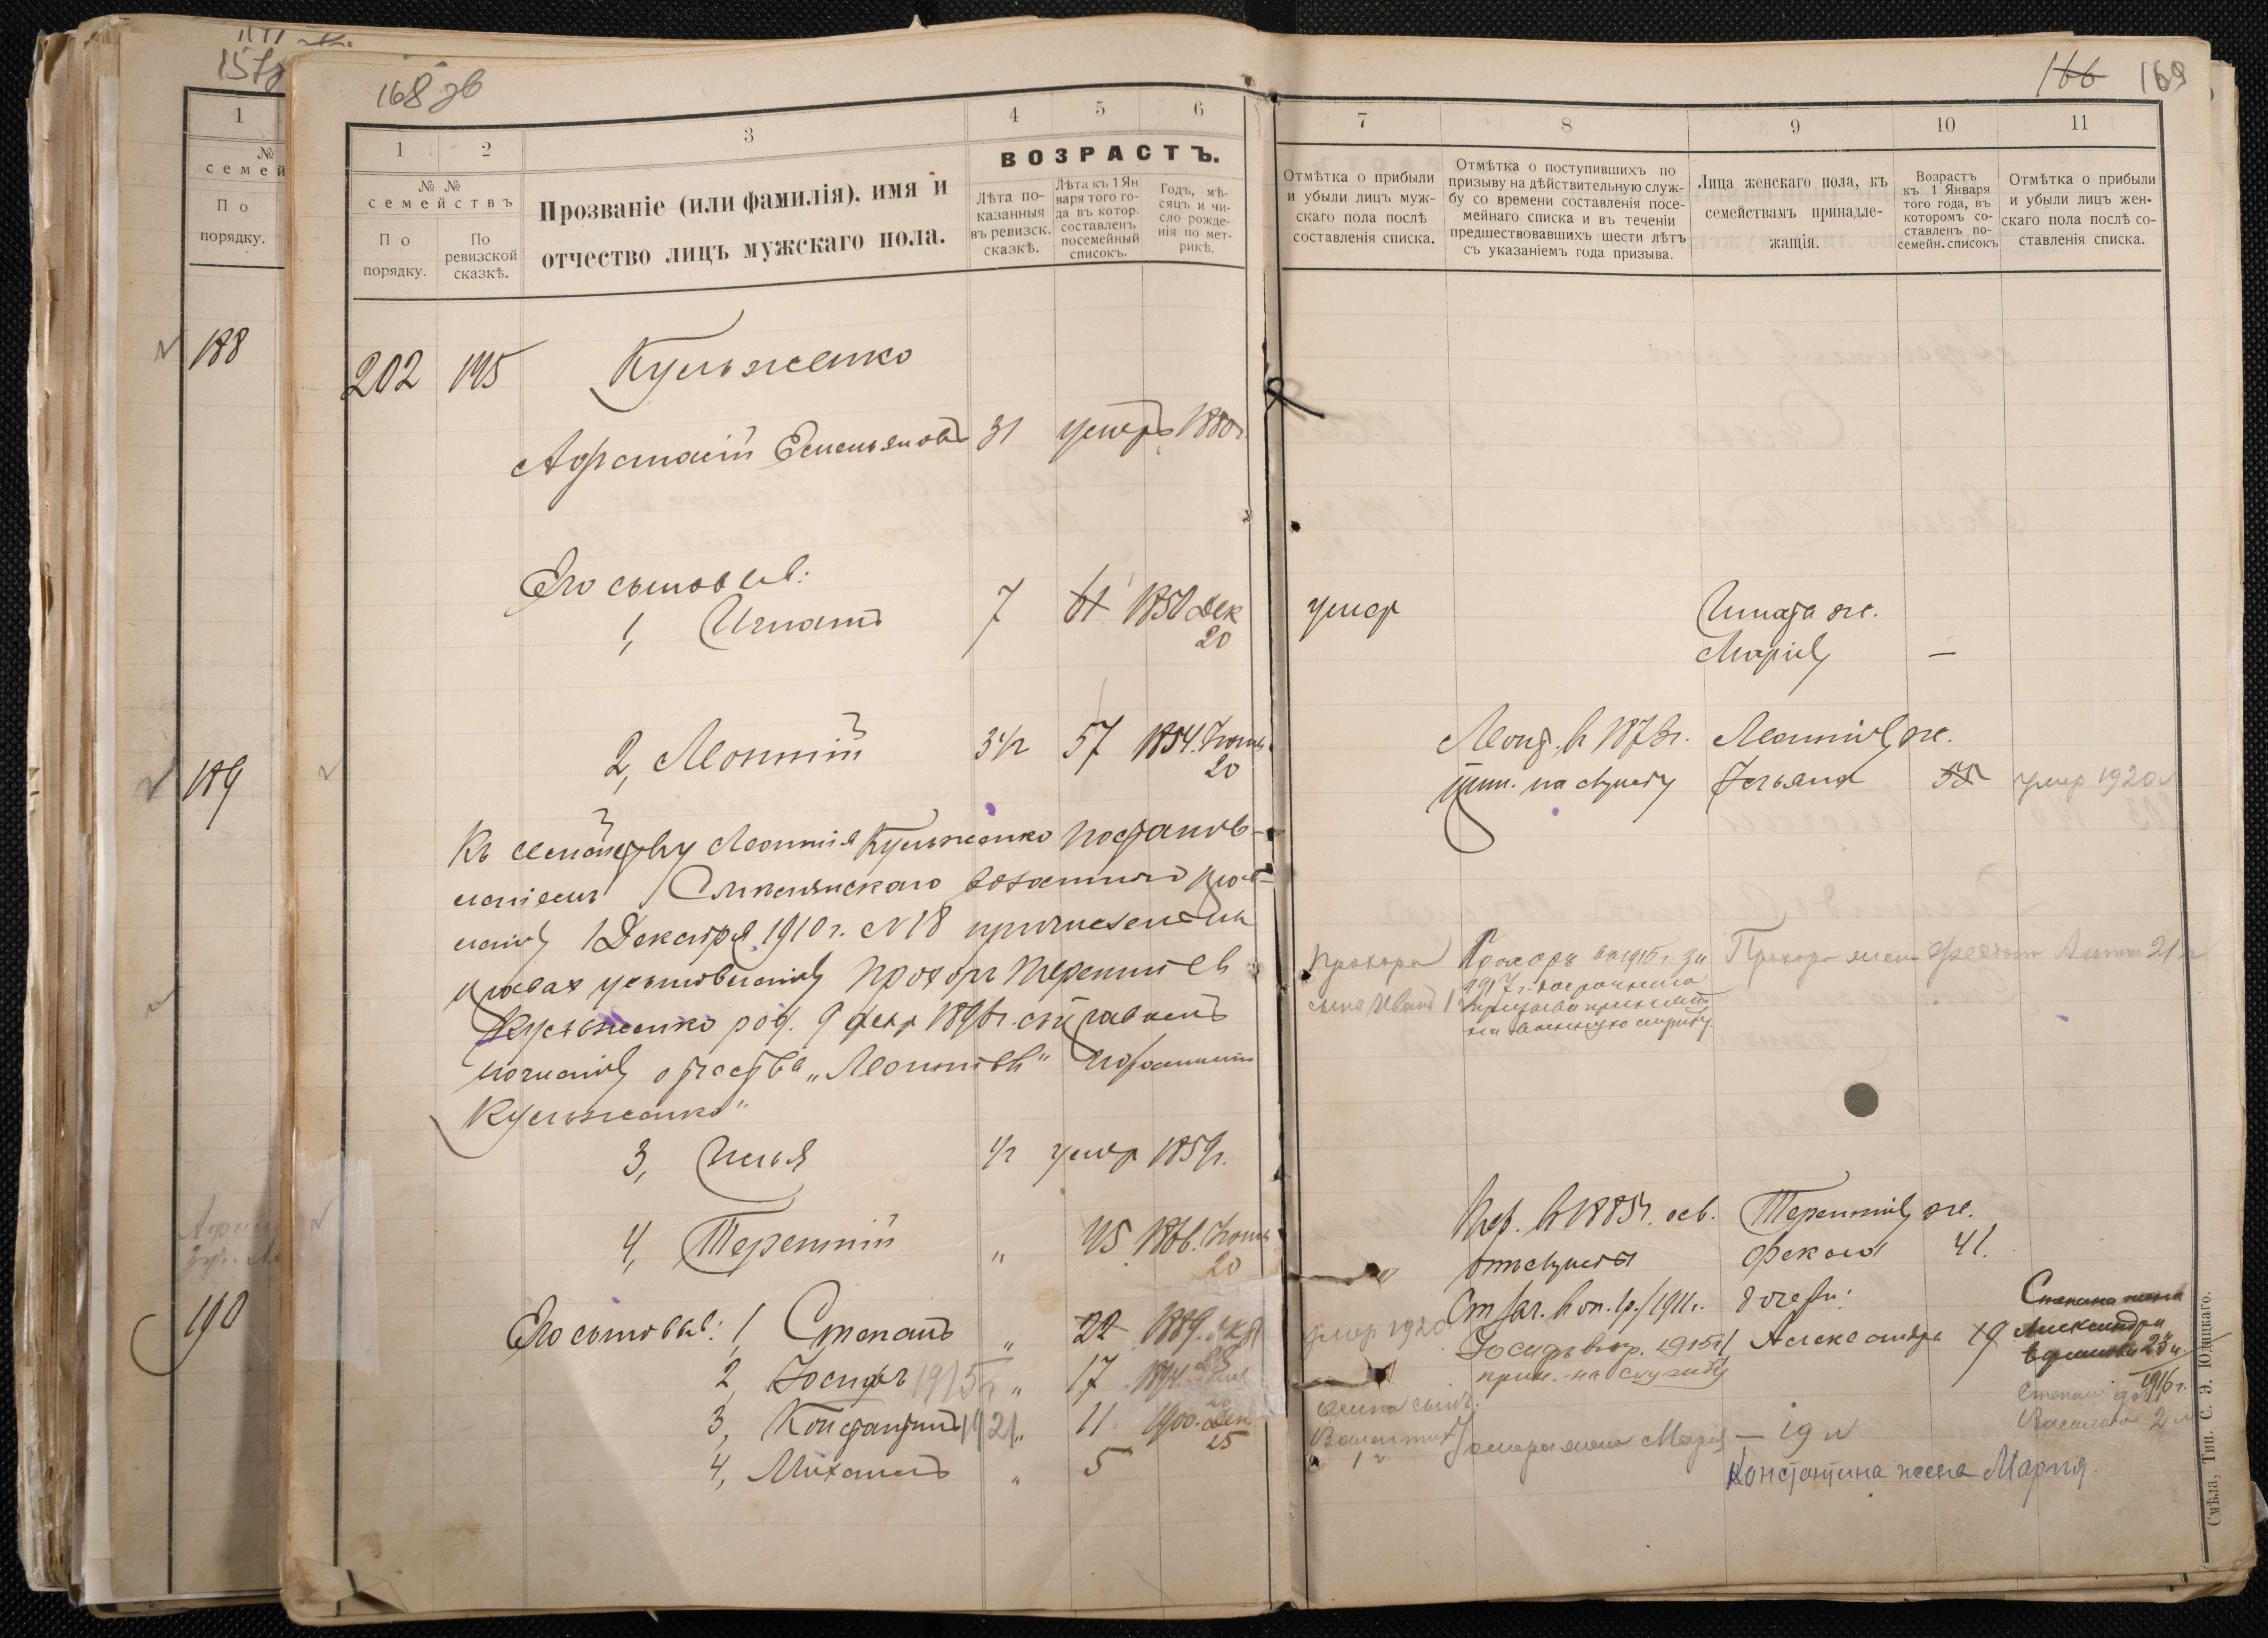 168 зв
166 169
1
№
семей
По
порядку.
188
189
190
1
2
3
4
5
6
№ №
семействъ
По
порядку.
По
ревизской
сказкѣ.
Прозваніе (или фамилія), имя и
отчество лицъ мужскаго пола.
ВОЗРАСТЪ.
Лѣта по-
казанныя
въ ревизск.
сказкѣ.
Лѣта къ 1 Ян
варя того го-
да въ котор.
составленъ
посемейный
списокъ.
Годъ, мѣ-
сяцъ и чи-
сло рожде-
нія по мет-
рикѣ.
7
8
9
10
11
Отмѣтка о прибыли
и убыли лицъ муж-
скаго пола послѣ
составленія списка.
Отмѣтка о поступившихъ по
призыву на дѣйствительную служ-
бу со времени составленія посе-
мейнаго списка и въ теченіи
предшествовавшихъ шести лѣтъ
съ указаніемъ года призыва.
Лица женскаго пола, къ
семействамъ принадле-
жащія.
Возрастъ
къ 1 Января
того года, въ
которомъ со-
ставленъ по-
семейн. списокъ
Отмѣтка о прибыли
и убыли лицъ жен-
скаго пола послѣ со-
ставленія списка.
202 195 Кульженко
Афанасій Емельяновъ 31 умеръ 1880г.
Его сыновья:
1, Игнатъ 7 61 1850 Дек
20
умер
Игната ж.
Марія —
2, Леонтій 3½ 57 1854. Іюнь
20
Леонт. в 1873г.
прин. на службу
Леонтія ж.
Татьяна 55 умер 1920
Къ семейству Леонтія Кульженко постанов-
леніемъ Смелянскаго волостного прав-
ленія 1 Декабря 1910 г. № 18 причисленъ на
правах усыновленія Прохоръ Терентіев
Кульженко род. 9 февр 1896г. съ правомъ
отчества „Леонтіевъ" и фамиліи
Кульженко"
Прохора
сына Иванъ 1
Прохоръ въ 1915 г. за
1917 г. досрочнаго
призыва принятъ
на военную службу.
Прохора жена 21
3, Илья ½ умер 1859г.
4, Терентій „ 45 1866. Іюнь
20
Тер. в 1885г. осв.
от службы
Терентія ж.
Фекла 41.
Его сыновья: 1, Степанъ „ 22 1889.
умер 1920
1911г.
дочери:
Александра 19
Степана жена
Александра
23
1916 г.
2, Іосифъ 1915г „ 17
Іосифъ в пр. 1915г
прин. на службу
3, Константинъ 1921 „ 11 1900. Дек
25
4, Михаилъ „ 5
сынъ
Валентин
1 г
жена Марія — 19 л
Степана
2 л
Константина жена Мария.
Смѣла, Тип. С. Э. Юдицкаго.